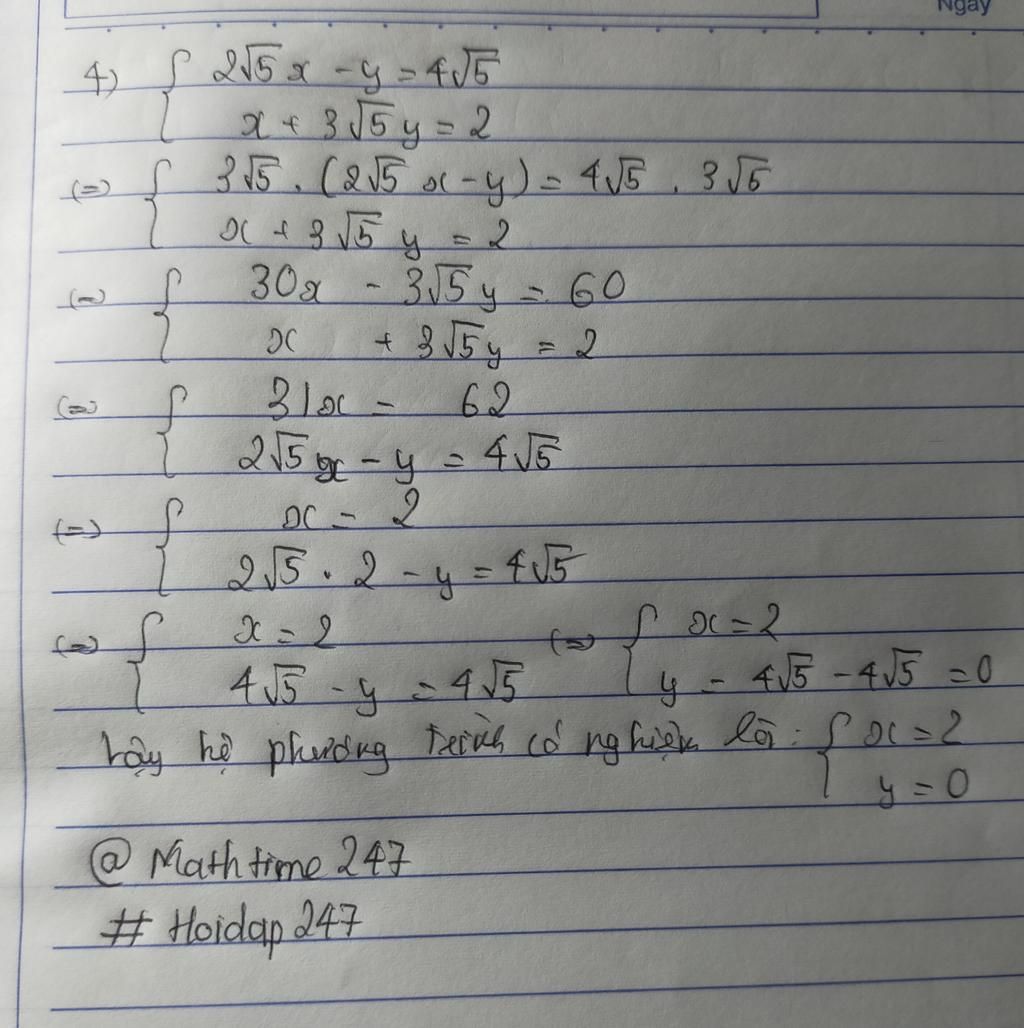 Ngày
4) { 2√5x - y = 4√5
x + 3√5y = 2
(=) { 3√5 . (2√5 x - y) = 4√5 . 3√5
x + 3√5 y = 2
(=) { 30x - 3√5y = 60
x + 3√5y = 2
(=) { 31x = 62
2√5x - y = 4√5
(=) { x = 2
2√5 . 2 - y = 4√5
(=) { x = 2 (=) { x = 2
4√5 - y = 4√5 y = 4√5 - 4√5 = 0
Vậy hệ phương trình có nghiệm là : { x = 2
y = 0
@ Mathtime 247
# Hoidap 247